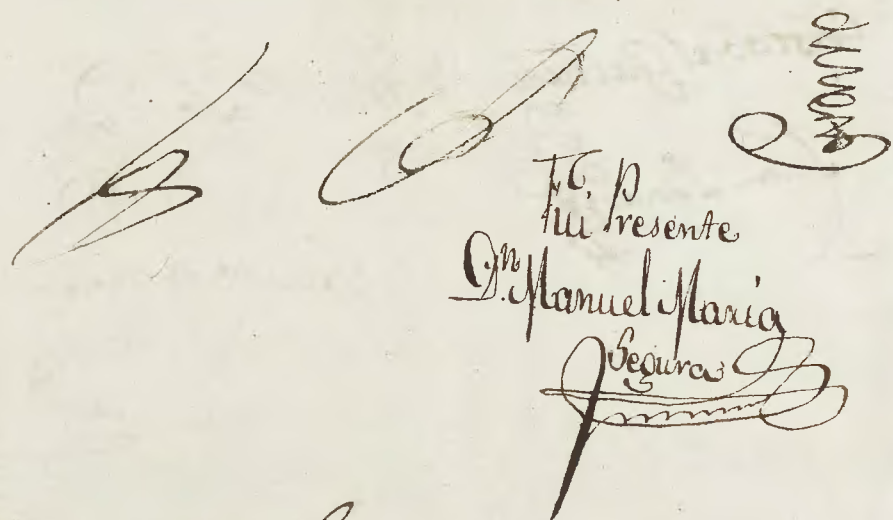 Fui Presente
Dn. Manuel Maria
Segura